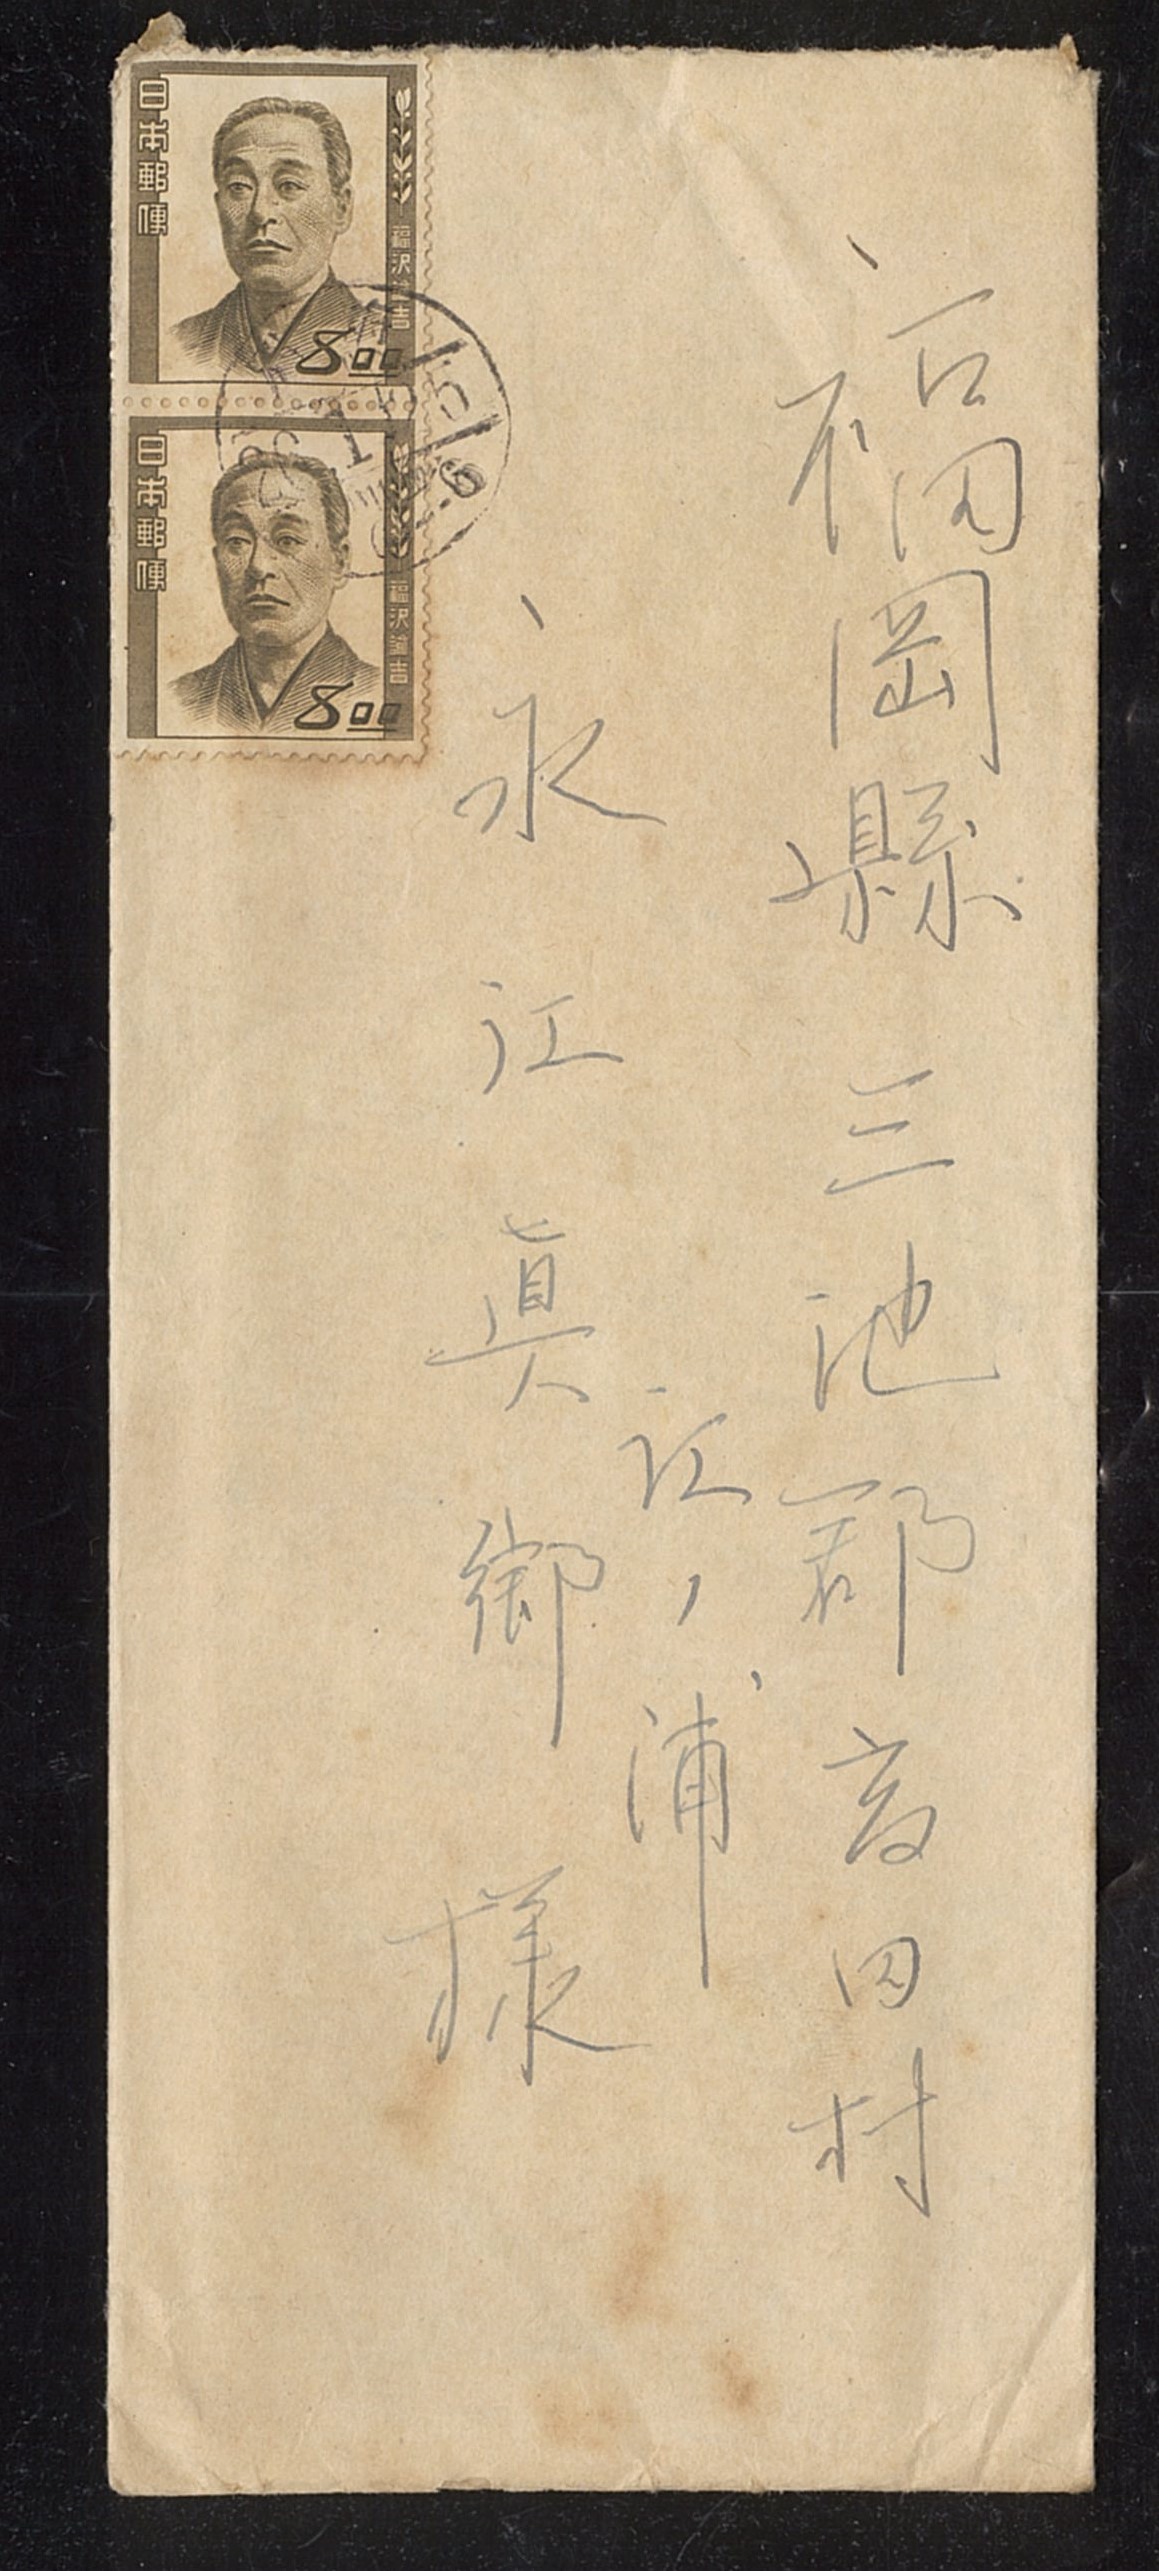 福岡縣 三池郡高田村
江ノ浦
永江眞郷様
日本郵便
福沢諭吉
8.00
日本郵便
福沢諭吉
8.00